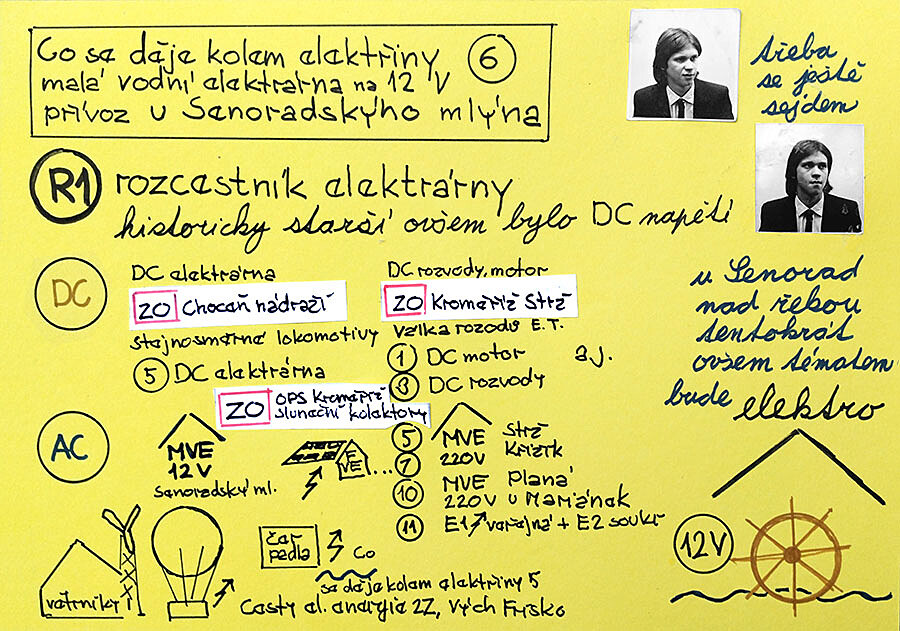 Co sa dăja kolam alaktřiny 6
malá vodní alaktrárna na 12 V
přívoz u Sanoradskýho mlýna
třeba
se ještě
sejdem
R1 rozcastník alaktrárny
historicky starší ovšem bylo DC napětí
DC
DC alaktrárna
ZO Chocaň nádraží
Stajnosmárná lokomotivy
5 DC alaktrárna
ZO OPS Kromăříž
slunační kolaktory
DC rozvody, motor
ZO Kromăříž Strž
Valka rozvody E.T.
1 DC motor a.j.
3 DC rozvody
u Senorad
nad řekou
tentokrát
ovšem tématem
bude elektro
AC
MVE
12 V
Sanoradský ml.
F
VE ...
5 MVE Strž
7 220V Křižík
10 MVE Planá
220V u Mariának
11 E1 vařajná + E2 soukr
12V
vatrníky
čar
padla
Co
sa dăja kolam alaktřiny 5
Casty al. anargia 2Z, Vých Frísko